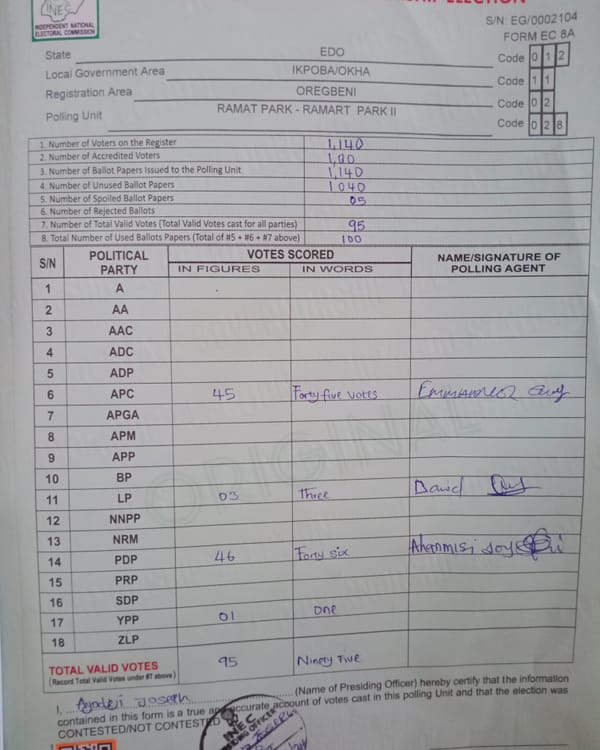 INEC
INDEPENDENT NATIONAL
ELECTORAL COMMISSION
ELECTION
S/N EG/0002104
FORM EC 8A
State EDO Code 0 1 2
Local Government Area IKPOBA/OKHA Code 1 1
Registration Area OREGBENI Code 0 2
Polling Unit RAMAT PARK - RAMART PARK II Code 0 2 8
1. Number of Voters on the Register 1,140
2. Number of Accredited Voters 1,00
3. Number of Ballot Papers Issued to the Polling Unit 1,140
4. Number of Unused Ballot Papers 1040
5. Number of Spoiled Ballot Papers 05
6. Number of Rejected Ballots
7. Number of Total Valid Votes (Total Valid Votes cast for all parties) 95
8. Total Number of Used Ballots Papers (Total of #5 + #6 + #7 above) 100
S/N POLITICAL PARTY VOTES SCORED NAME/SIGNATURE OF POLLING AGENT
IN FIGURES IN WORDS
1 A
2 AA
3 AAC
4 ADC
5 ADP
6 APC 45 Forty five votes Emmanuel
7 APGA
8 APM
9 APP
10 BP
11 LP 03 Three David
12 NNPP
13 NRM
14 PDP 46 Forty six Joy
15 PRP
16 SDP
17 YPP 01 One
18 ZLP
TOTAL VALID VOTES 95 Ninety Five
(Record Total Valid Votes under #7 above)
ORIGINAL
I, Ayodeji Joseph (Name of Presiding Officer) hereby certify that the information
contained in this form is a true and accurate account of votes cast in this polling Unit and that the election was
CONTESTED/NOT CONTESTED
INEC